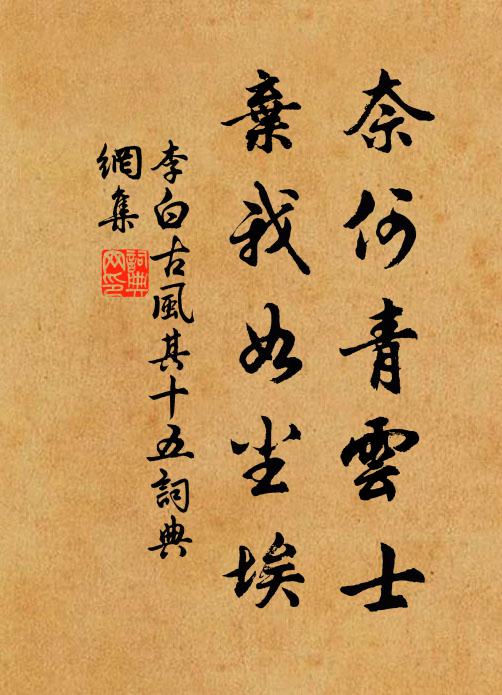 奈何青雲士
棄我如尘埃
李白古風其十五詞典
網集
詞典
网印